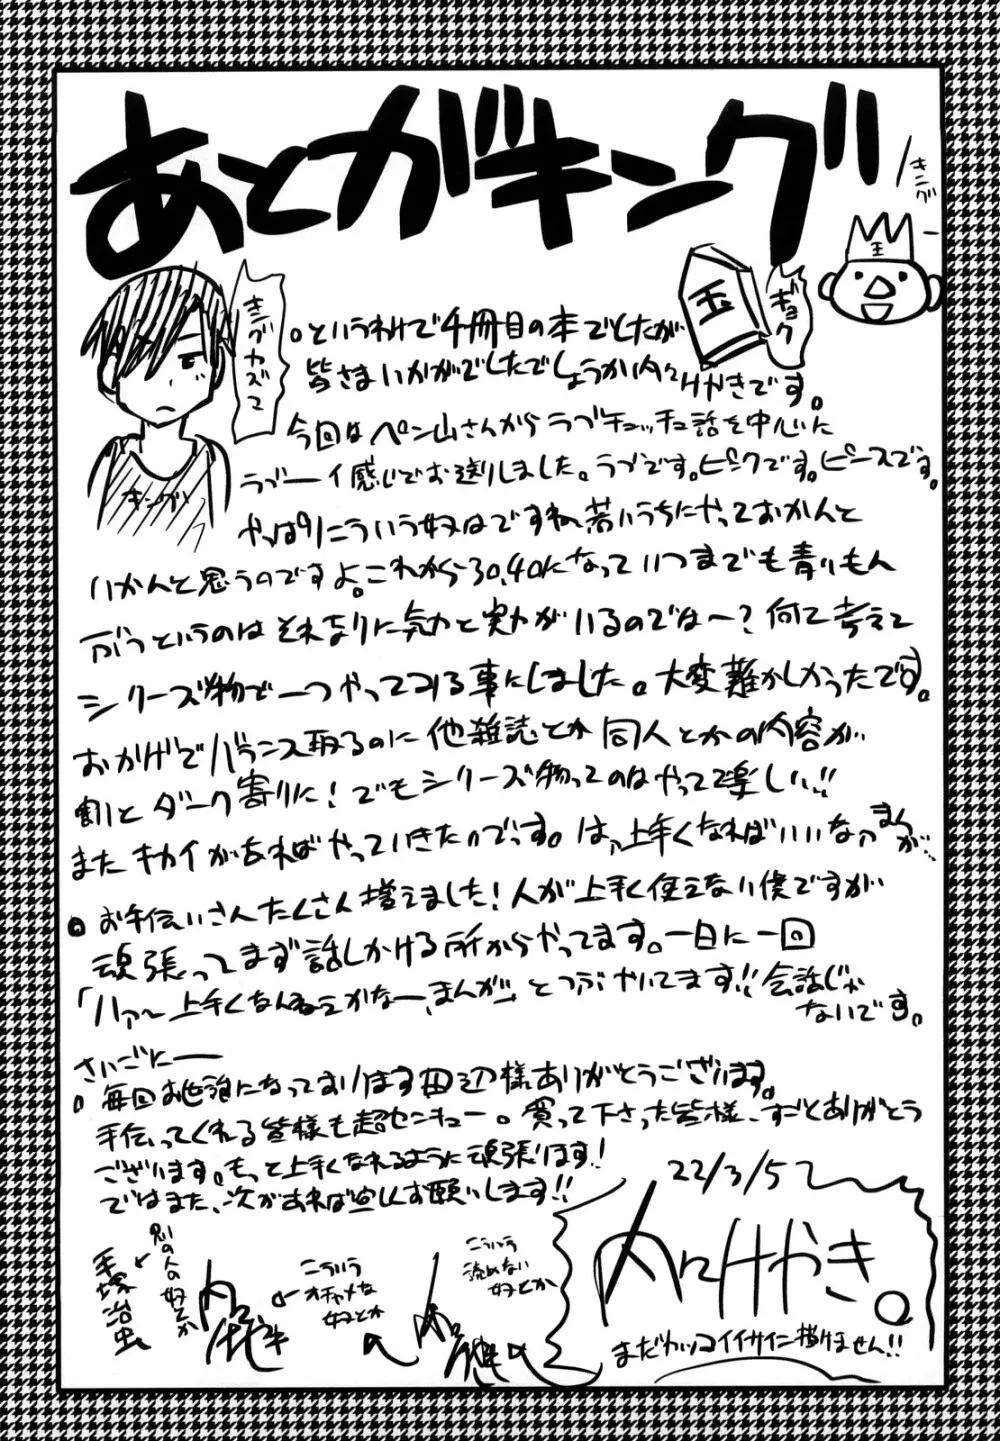 あとがキング
キング
王
玉
ギョク
キングカズで
キング
。というわけで4冊目の本でしたが
皆さまいかがでしたでしょうか内々けやきです。
今回はペン山さんからラブチュッチュ話を中心に
ラブーイ感じでお送りしました。ラブです。ピンクです。ピースです。
やっぱりこういう奴はですね若いうちにやっておかんと
いかんと思うのですよ。これから30,40になっていつまでも青いもん
ぶつというのはそれなりに気力と実力がいるのでは〜?何て考えて
シリーズ物で一つやってみる事にしました。大変難かしかったです。
おかげでバランス取るのに他雑誌とか同人とかの内容が
割とダーク寄りに!でもシリーズ物ってのはやってて楽しい!!
またキカイがあればやっていきたいです。はァ上手くなればいいなァまんが…
。お手伝いさんたくさん増えました!人が上手く使えない僕ですが
頑張ってまず話しかける所からやってます。一日に一回
「ハァ〜上手くなんねぇかなーまんが」とつぶやいてます!!会話じゃ
ないです。
さいごにー
。毎回お世話になっております田辺様ありがとうございます。
手伝ってくれる皆様も超センキュー。買って下さった皆様、すごとありがとう
ございます。もっと上手くなれるように頑張ります!
ではまた、次があれば宜しくお願いします!!
22/3/5
内々けやき。
まだカッコイイサイン描けません!!
こういう
読めない
奴とか
こういう
オチャメな
奴とか
別の人の奴とか
手塚治虫